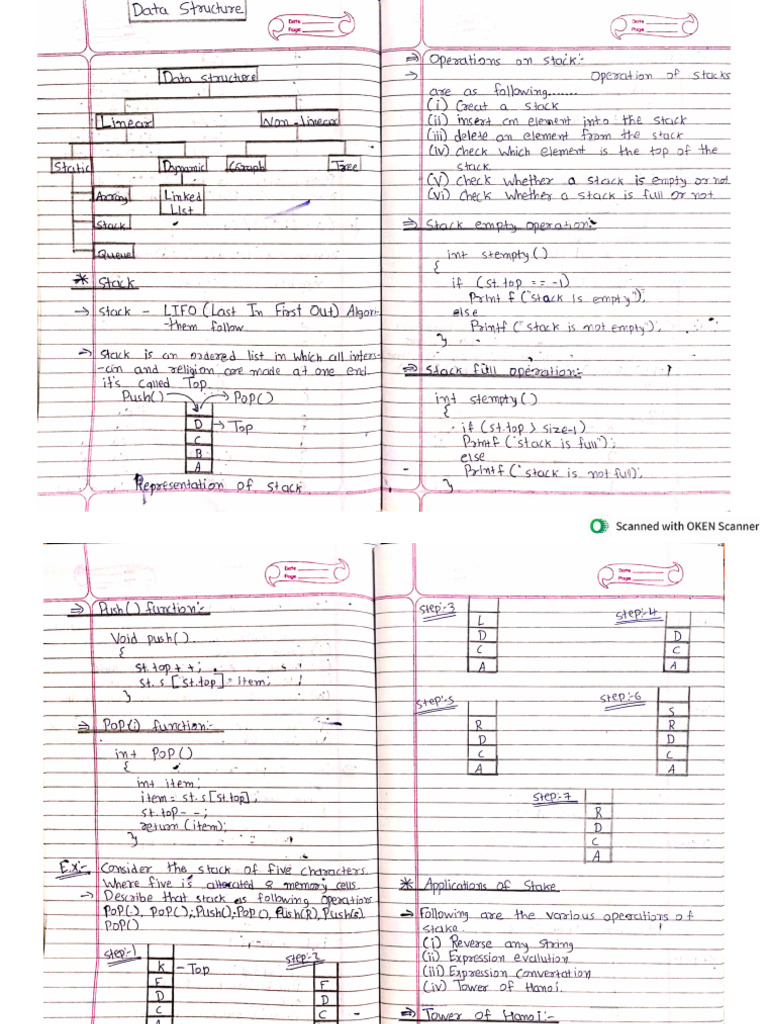 Data Structure
Date
Page
Data structure
Linear
Non-linear
Static
Dynamic
Graph
Tree
Array
Linked
List
Stack
Queue
* Stack
→ Stack - LIFO (Last In First Out) Algori-
-them follow
→ Stack is an ordered list in which all inters-
-cin and religion are made at one end
it's called Top.
Push() → POP()
D → Top
C
B
A
Representation of Stack.
Date
Page
⇒ Operations on stack:-
→ Operation of stacks
are as following.......
(i) Creat a stack
(ii) insert an element into the stack
(iii) delete an element from the stack
(iv) check which element is the top of the
stack.
(v) check whether a stack is empty or not
(vi) check whether a stack is full or not
⇒ Stack empty operation:-
int stempty()
{
if (st.top == -1)
Print f ("stack is empty");
else
Printf ("stack is not empty");
}
⇒ Stack full operation:-
int stempty()
{
if (st.top > size-1)
Printf ("stack is full");
else
Printf ("stack is not full);
}
Scanned with OKEN Scanner
Date
Page
⇒ Push() function:-
Void push()
{
st.top++;
st.s[st.top] = item;
}
⇒ POP() function:-
int POP()
{
int item;
item = st.s[st.top];
st.top--;
return (item);
}
Ex:- Consider the stack of five characters.
Where five is allocated 8 memory cells.
→ Describe that stack as following operations
POP(), POP(); Push(); POP(), Push(R), Push(s)
POP()
step:-1
K - Top
F
D
C
A
step:-2
F
D
C
Date
Page
step:-3
L
D
C
A
step:-4
D
C
A
step:-5
R
D
C
A
step:-6
S
R
D
C
A
step:-7
R
D
C
A
* Applications of Stake
→ Following are the various operations of
stake.
(i) Reverse any string
(ii) Expression evalution
(iii) Expression convertation
(iv) Tower of Hanoi.
⇒ Tower of Hanoi:-